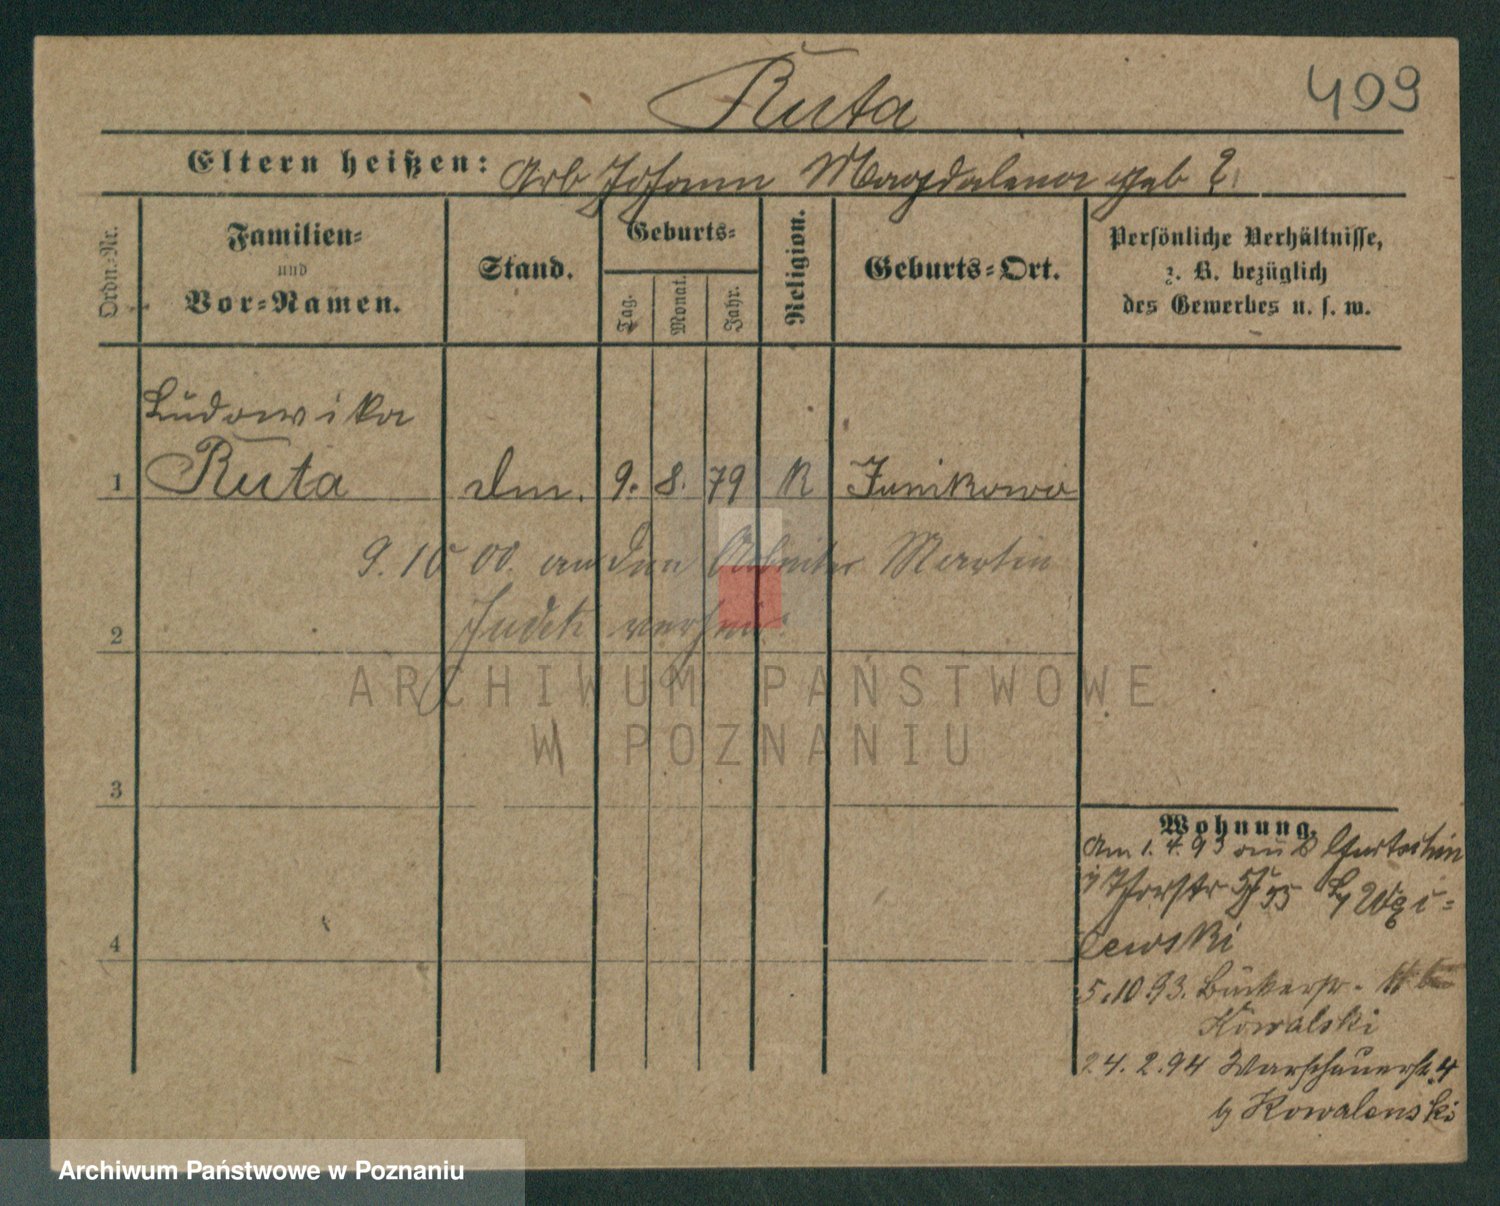 Ruta
409
Eltern heißen: Arb Johann Magdalena geb ?
Ordn.-Nr.
Familien-
und
Vor-Namen.
Stand.
Geburts-
Tag.
Monat.
Jahr.
Religion.
Geburts-Ort.
Persönliche Verhältnisse,
z. B. bezüglich
des Gewerbes u. s. w.
Ludowika
1 Ruta dm. 9. 8. 79 K Junikowo
9. 10 00. an den Arbeiter Martin
2 verhei
ARCHIWUM PAŃSTWOWE
W POZNANIU
3
4
Wohnung.
Am 1. 4. 93 aus
Thorstr
ewski
5. 10 93. Bäckerstr.
Kowalski
24. 2. 94 Warschauerstr. 4
b Kowalenski
Archiwum Państwowe w Poznaniu